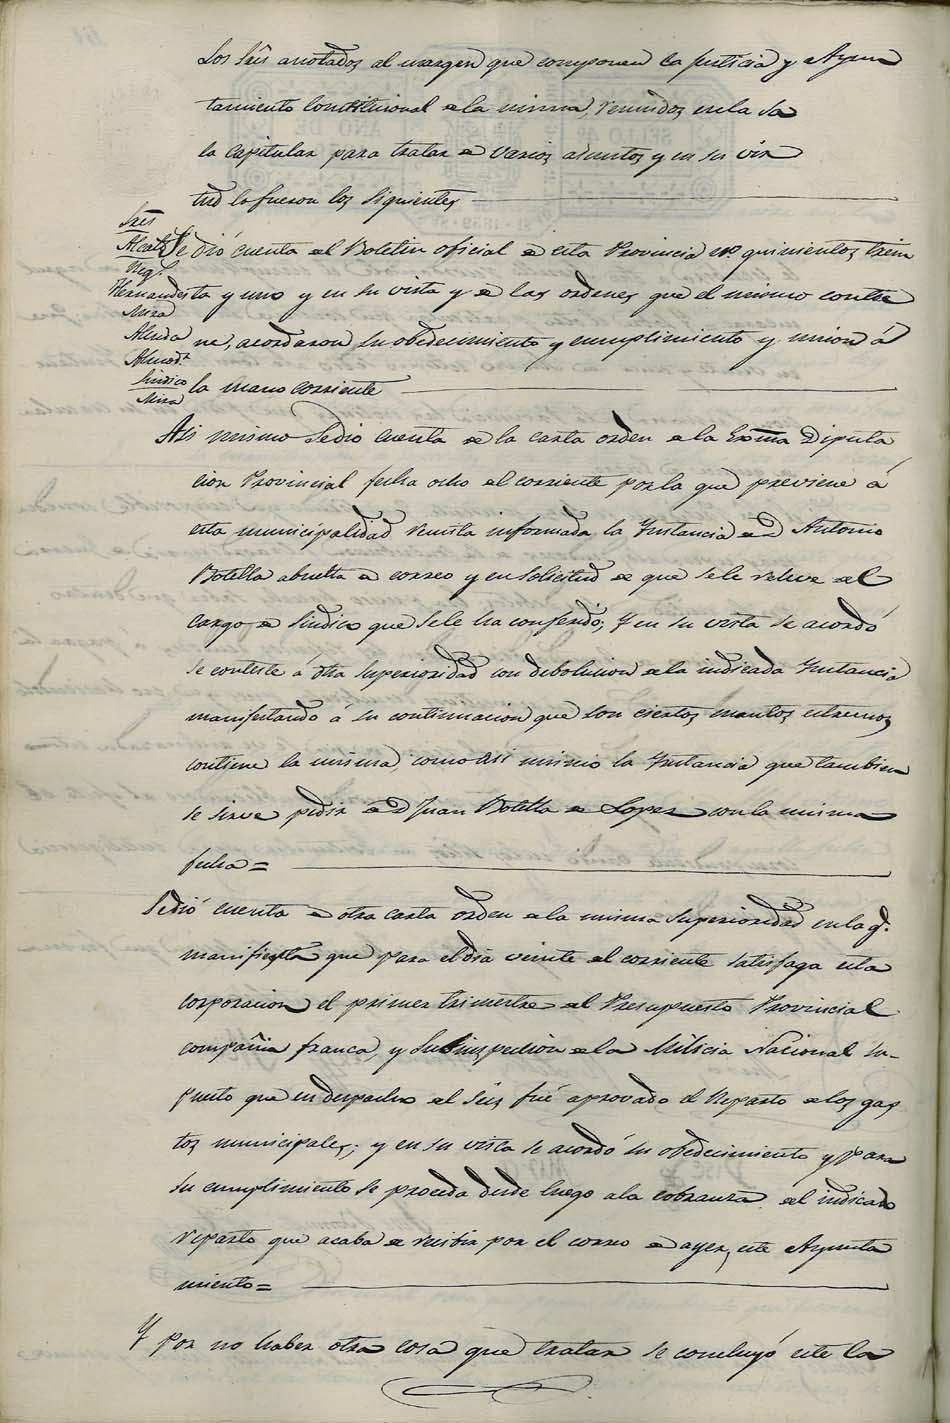 Los Srs anotados al margen que componen la Justicia y Ayun
tamiento Constitucional de la misma, reunidos en la Sa
la Capitular para tratar de varios asuntos y en su vir
tud lo fueron los siguientes
Sres
Alcalde
Reg.s
Hernandes
Mira
Almodr
Sindico
Mira
Se dió cuenta del Boletin oficial de esta Provincia nº quinientos trein
ta y uno y en su vista y de las ordenes que el mismo contie
ne, acordaron su obedecimiento y cumplimiento y union á
la mano corriente
Asi mismo se dio cuenta de la carta orden de la Exma Diputa
cion Provincial fecha ocho del corriente por la que previene á
esta municipalidad remita informada la Instancia de D Antonio
Botella abuelta de correo y en solicitud de que se le releve del
Cargo de Sindico que se le ha conferido; Y en su vista se acordó
se conteste á dha superioridad con debolucion de la indicada Instancia
manifestando á su continuacion que son ciertos cuantos estremos
contiene la misma, como asi mismo la Instancia que tambien
se sirve pedir de D Juan Botella de Lopez con la misma
fecha =
Se dió cuenta de otra carta orden de la misma Superioridad en la q.
manifiesta que para el dia veinte del corriente satisfaga esta
corporacion el primer trimestre del Presupuesto Provincial
compañia franca, y Subinspeccion de la Milicia Nacional su-
puesto que en despacho del seis fué aprovado el Reparto de los gas
tos municipales; y en su vista se acordó su obedecimiento y para
su cumplimiento se proceda desde luego a la cobranza del indicado
reparto que acaba de recibir por el correo de ayer, este Ayunta
miento =
Y por no haber otra cosa que tratar se concluyó este la